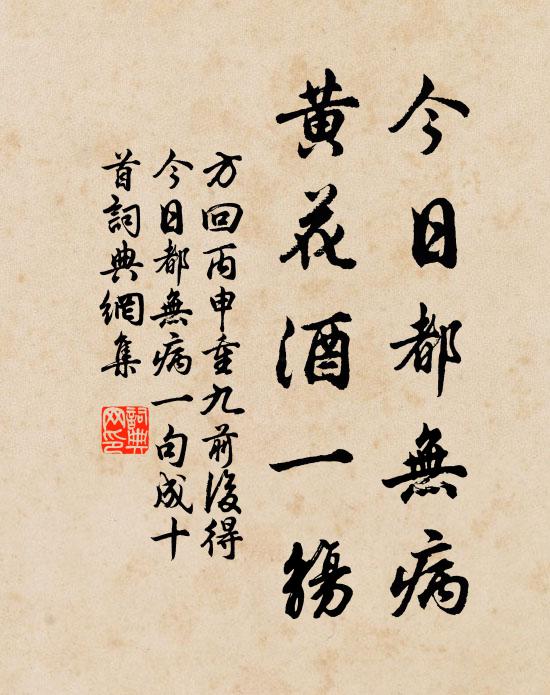 今日都無病
黃花酒一觴
方回丙申重九前後得
今日都無病一句成十
首詞典網集
詞典
网印